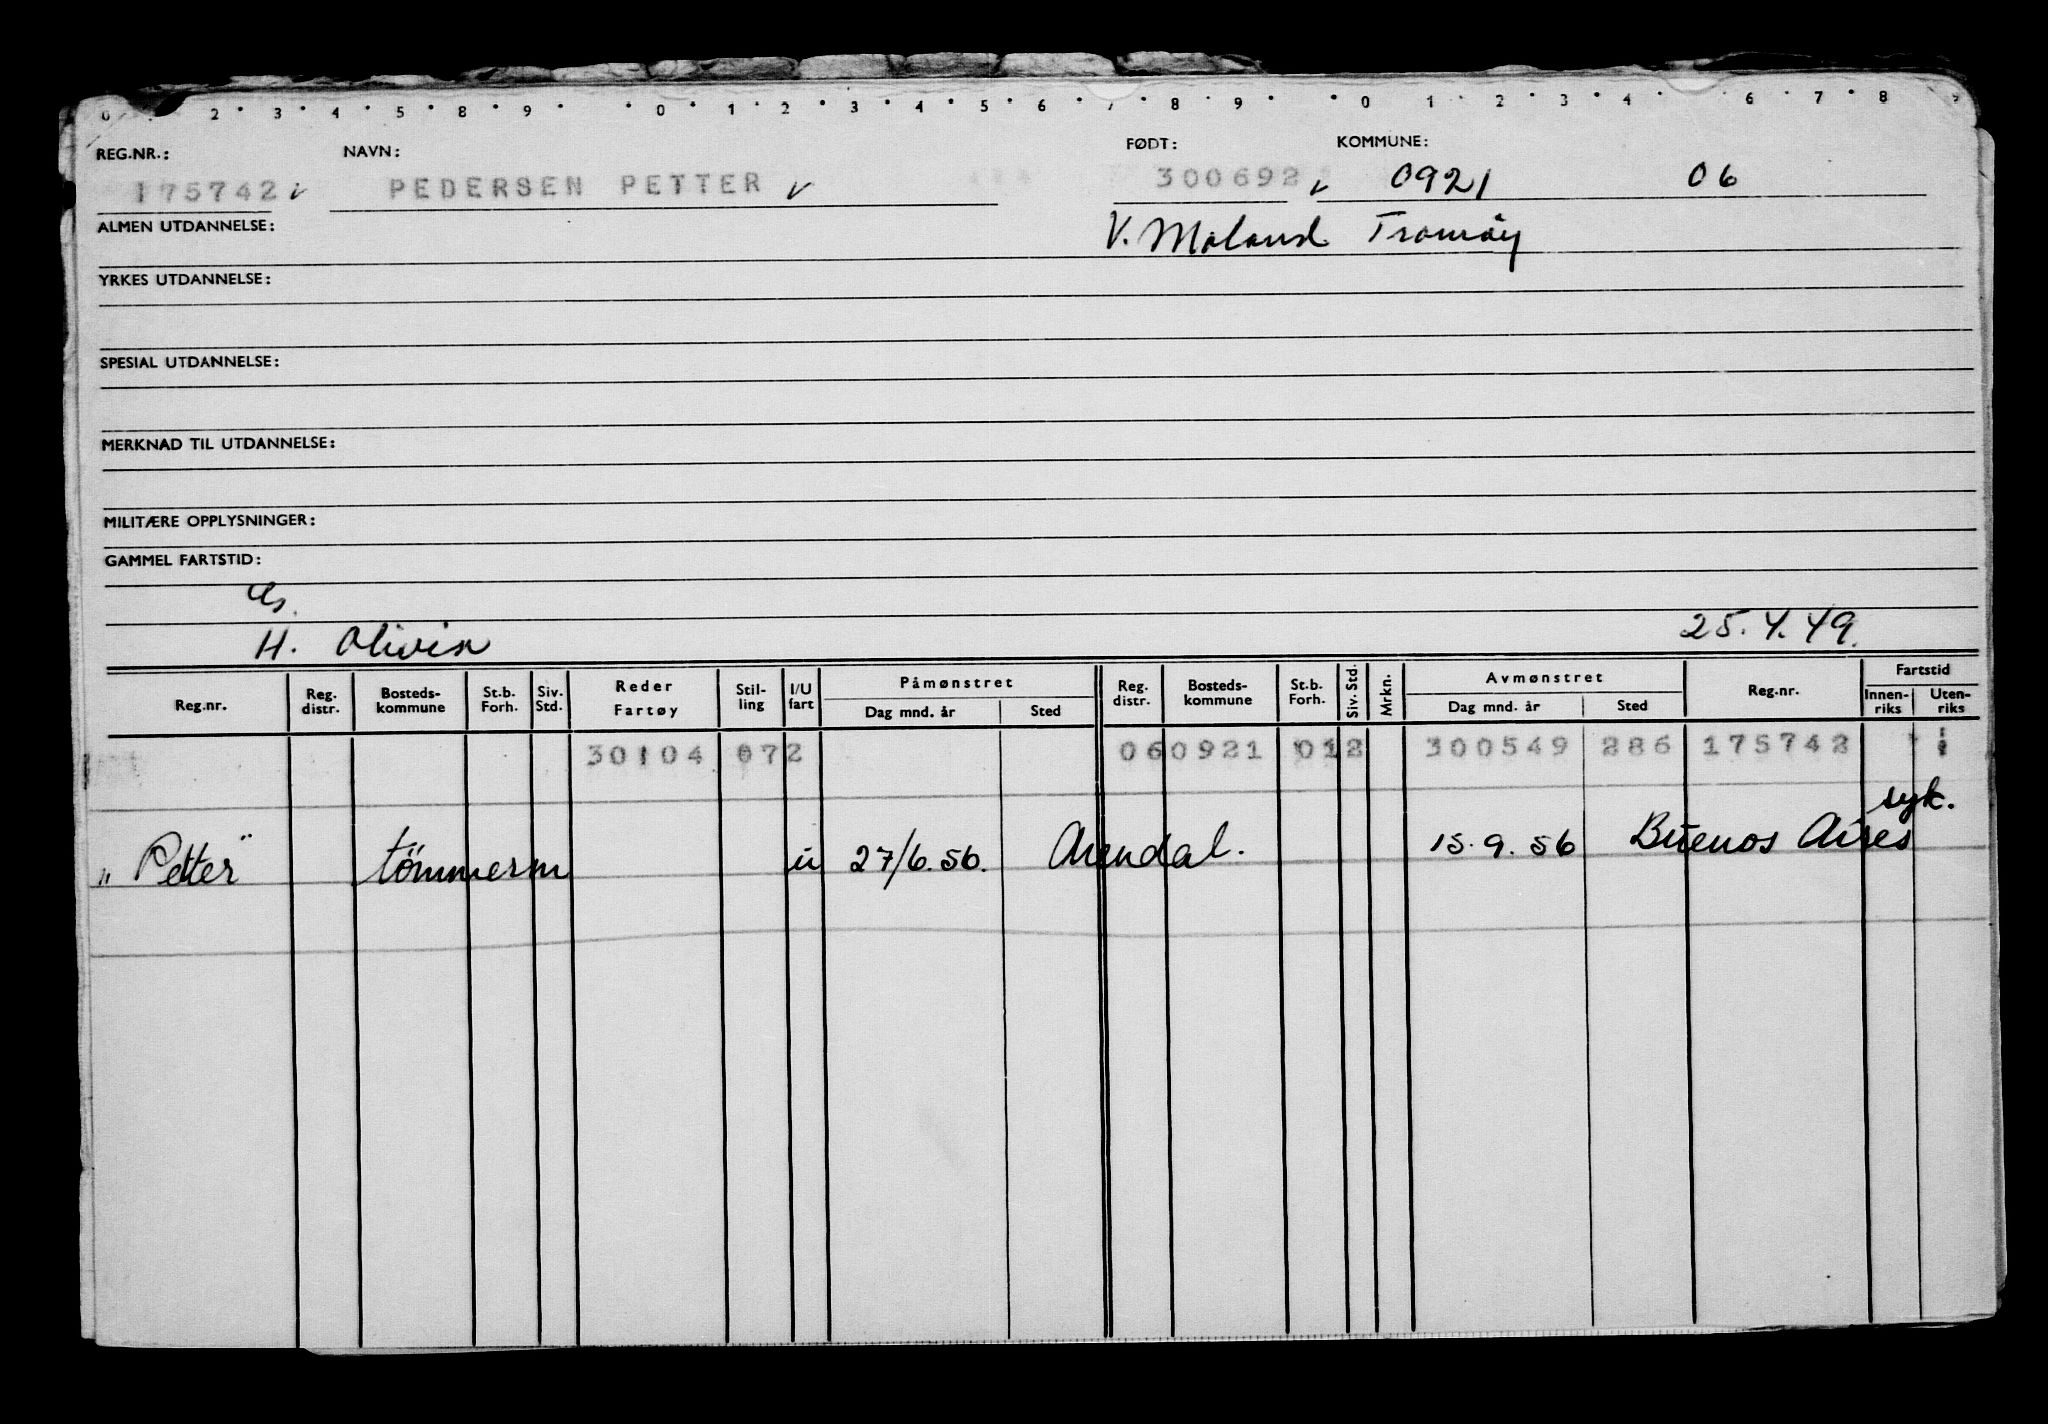 0 2 3 4 5 8 9 0 1 2 3 4 5 6 7 8 9 0 1 2 3 4 6 7 8 9
REG.NR.: NAVN: FØDT: KOMMUNE:
175742 v PEDERSEN PETTER v 300692 v 0921 06
ALMEN UTDANNELSE: V. Moland Tromøy
YRKES UTDANNELSE:
SPESIAL UTDANNELSE:
MERKNAD TIL UTDANNELSE:
MILITÆRE OPPLYSNINGER:
GAMMEL FARTSTID:
H. Olivia 25.4.49.
Reg.nr. Reg. distr. Bosteds-kommune St.b. Forh. Siv. Std. Reder Fartøy Stil-ling I/U fart Påmønstret Dag mnd. år Sted Reg. distr. Bosteds-kommune St.b. Forh. Siv. Std. Mrkn. Avmønstret Dag mnd. år Sted Reg.nr. Fartstid Innen-riks Uten-riks
30104 072 060921 012 300549 286 175742
syk.
"Petter" tömmerm u 27/6.56. Arendal. 15.9.56 Buenos Aires